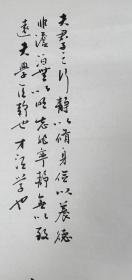 夫君子之行静以修身俭以养德
非澹泊无以明志非宁静无以致
远夫学须静也才须学也